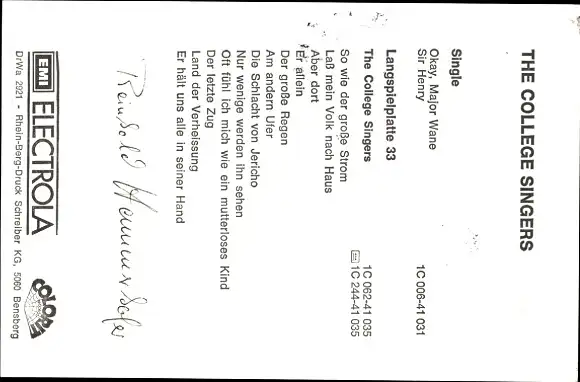 THE COLLEGE SINGERS
Single
Okay, Major Wane
Sir Henry 1C 006-41 031
Langspielplatte 33
The College Singers 1C 062-41 035
1C 244-41 035
So wie der große Strom
Laß mein Volk nach Haus
Aber dort
Er allein
Der große Regen
Am andern Ufer
Die Schlacht von Jericho
Nur wenige werden ihn sehen
Oft fühl ich mich wie ein mutterloses Kind
Der letzte Zug
Land der Verheissung
Er hält uns alle in seiner Hand
Reinhold
EMI ELECTROLA
DrWa 2921 - Rhein-Berg-Druck Schreiber KG, 5060 Bensberg